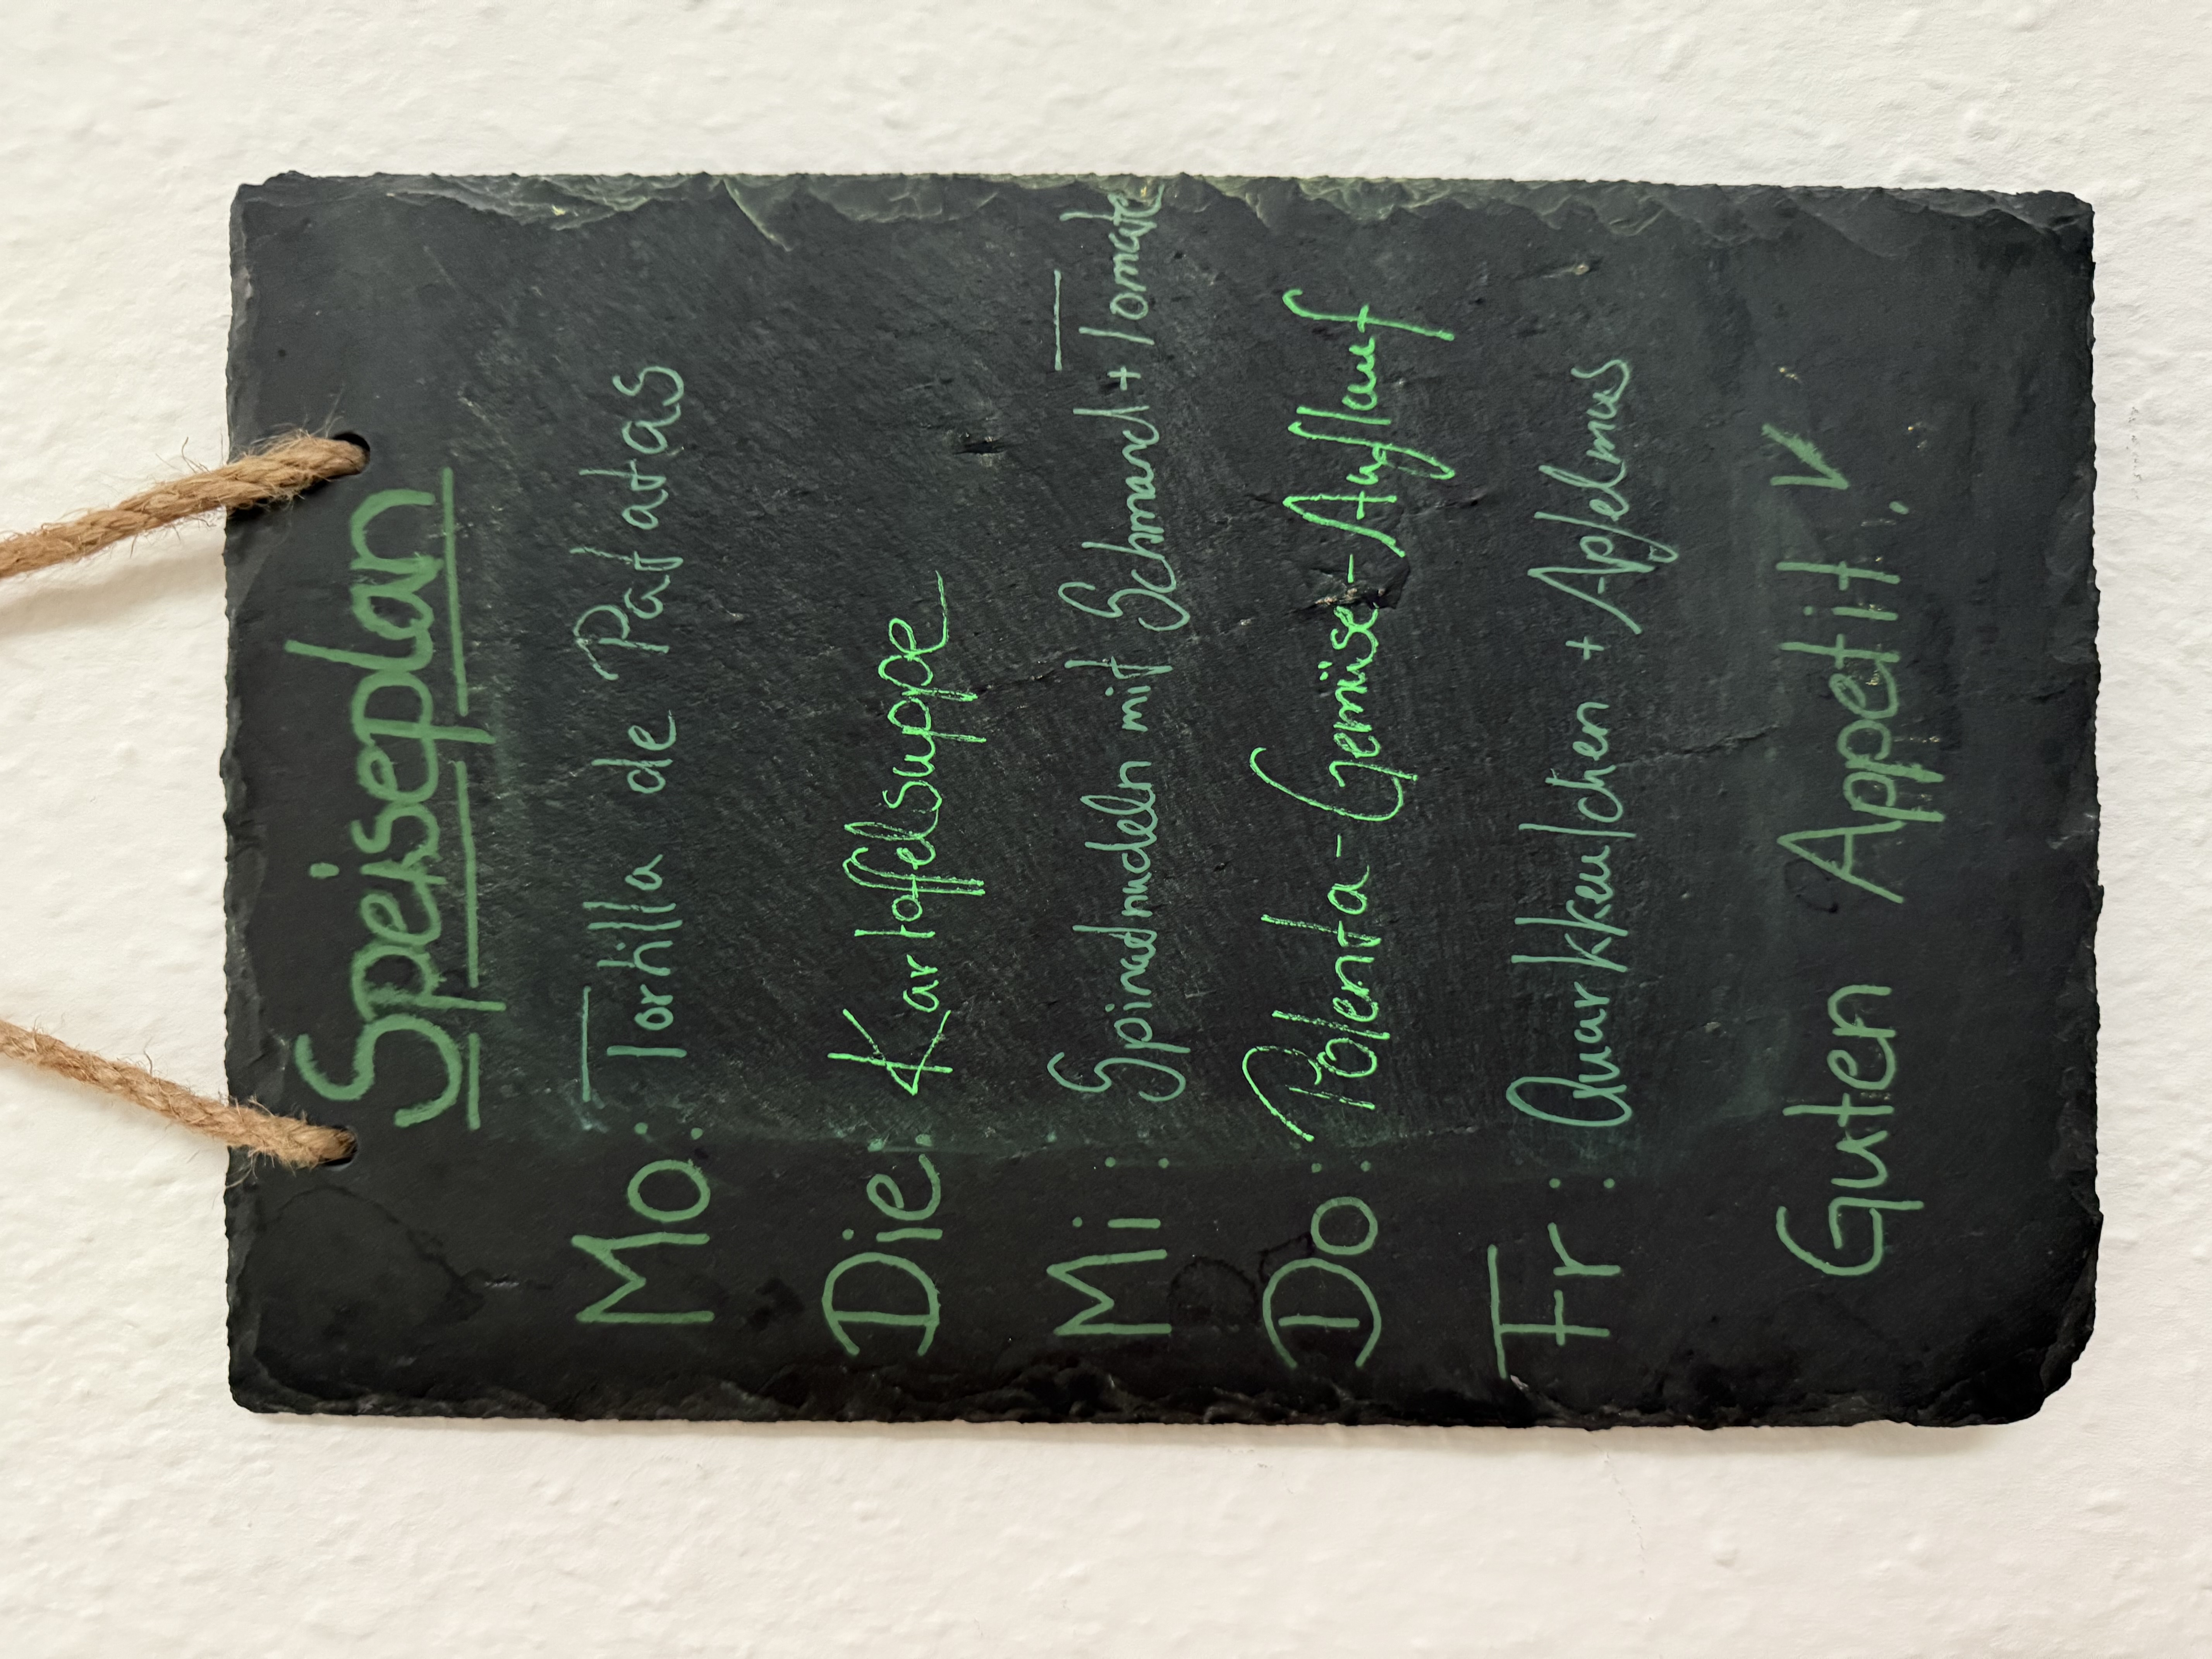 Speiseplan
Mo: Tortilla de Patatas
Die: Kartoffelsuppe
Mi: Spinatnudeln mit Schmand + Tomate
Do: Polenta-Gemüse-Auflauf
Fr: Quarkkeulchen + Apfelmus
Guten Appetit!